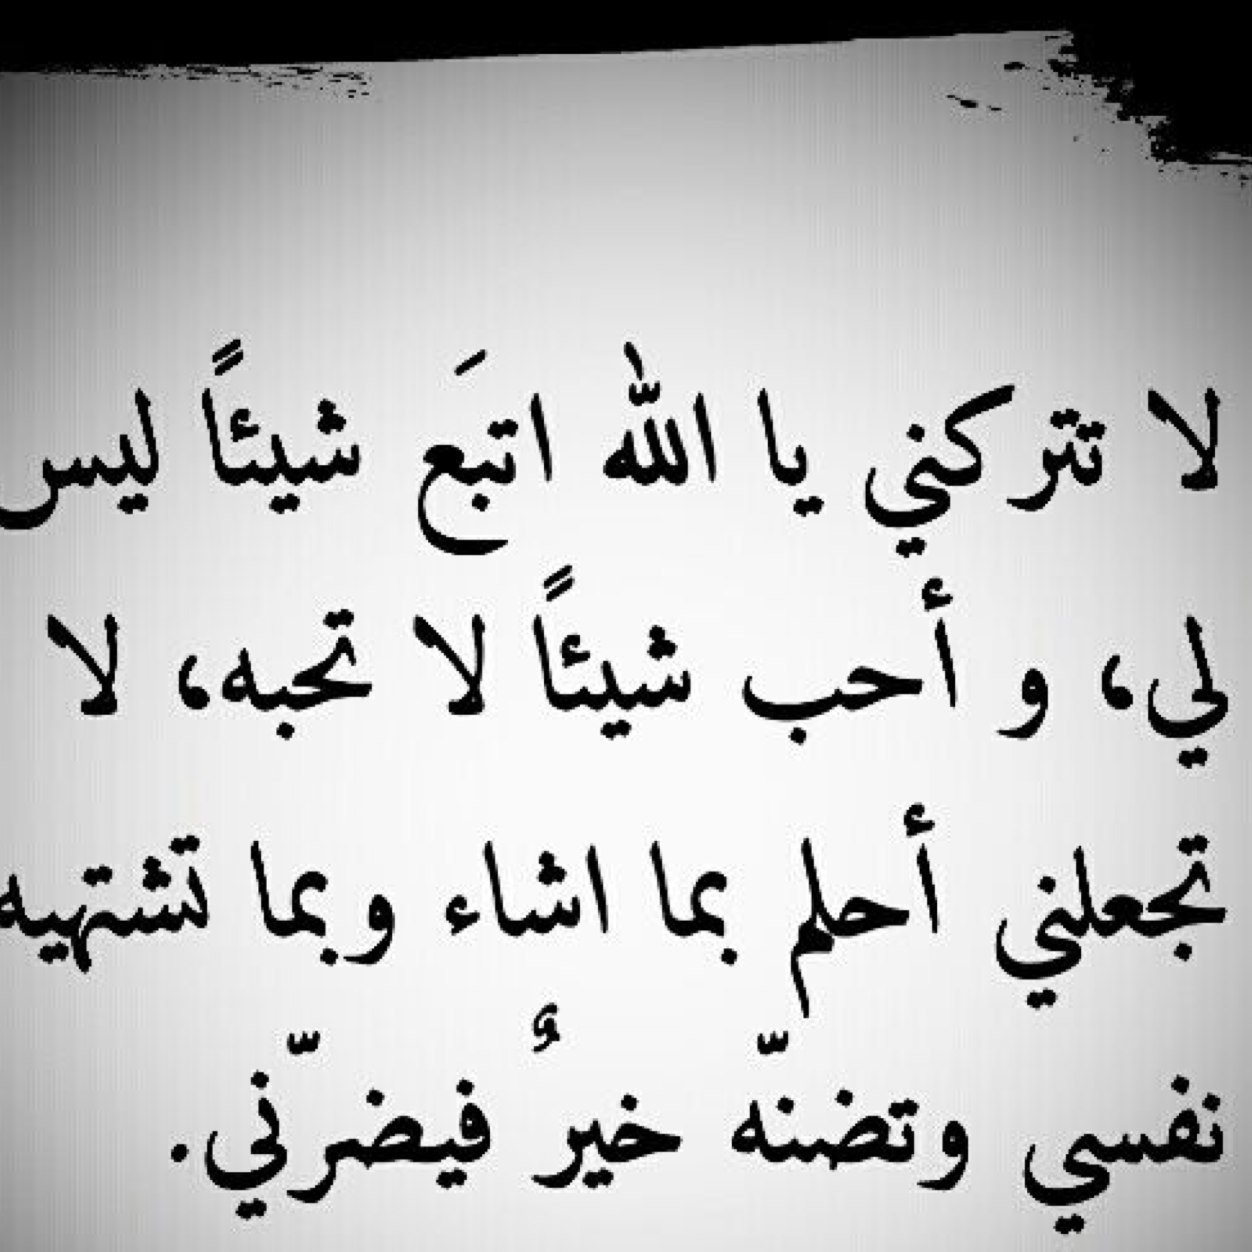 لا تتركني يا الله اتبَع شيئاً ليس
لي، و أحب شيئاً لا تحبه، لا
تجعلني أحلم بما اشاء وبما تشتهيه
نفسي وتضنّه خيرٌ فيضرّني.